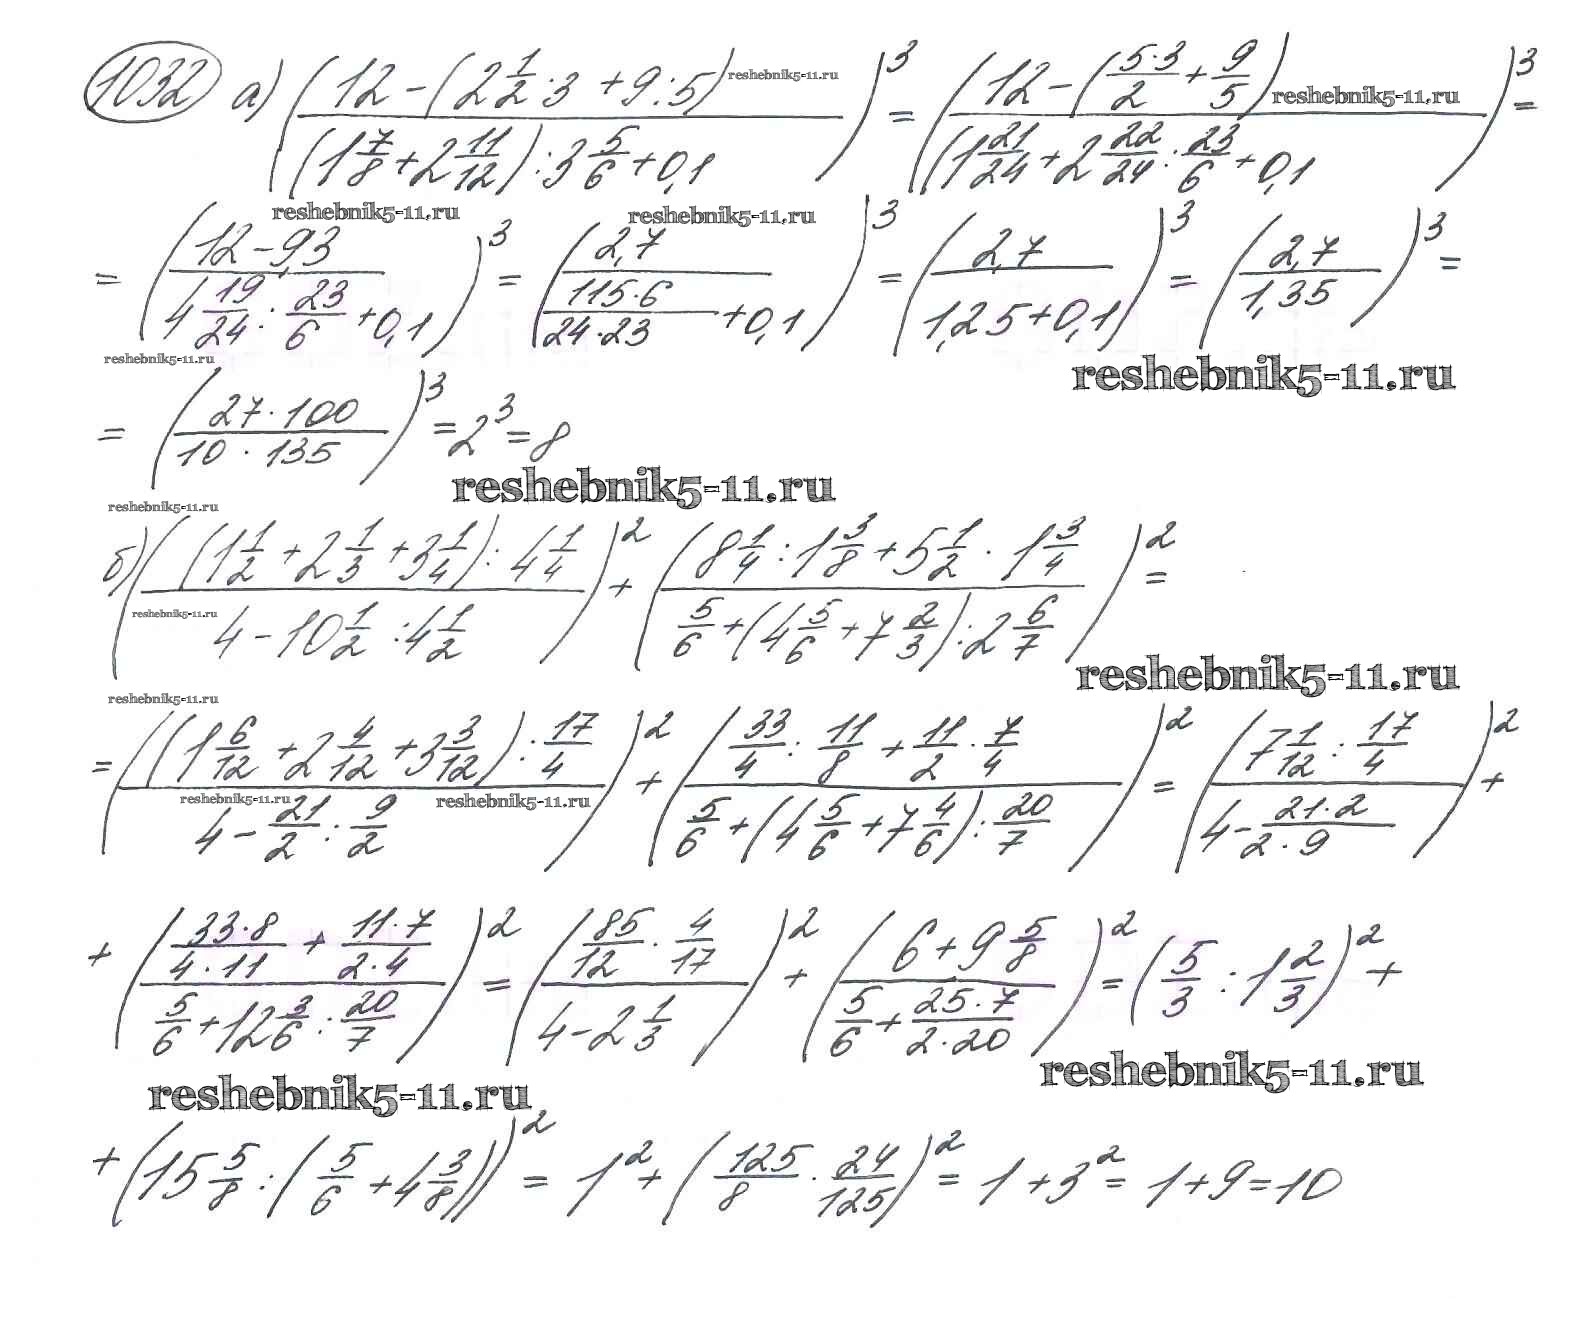 1032 а) ((12 - (2 1/2 · 3 + 9 : 5)) / ((1 7/8 + 2 11/12) : 3 5/6 + 0,1))^3 = ((12 - (5·3/2 + 9/5)) / ((1 21/24 + 2 22/24 : 23/6 + 0,1))^3 =
reshebnik5-11.ru reshebnik5-11.ru
reshebnik5-11.ru reshebnik5-11.ru
= ((12 - 9,3) / (4 19/24 : 23/6 + 0,1))^3 = (2,7 / (115·6/24·23 + 0,1))^3 = (2,7 / (1,25 + 0,1))^3 = (2,7 / 1,35)^3 =
reshebnik5-11.ru reshebnik5-11.ru
= (27·100 / 10·135)^3 = 2^3 = 8
reshebnik5-11.ru reshebnik5-11.ru
б) ((1 1/2 + 2 1/3 + 3 1/4) : 4 1/4 / 4 - 10 1/2 : 4 1/2)^2 + (8 1/4 : 1 3/8 + 5 1/2 · 1 3/4 / 5/6 + (4 5/6 + 7 2/3) : 2 6/7)^2 =
reshebnik5-11.ru
reshebnik5-11.ru reshebnik5-11.ru
= ((1 6/12 + 2 4/12 + 3 3/12) : 17/4 / 4 - 21/2 : 9/2)^2 + (33/4 : 11/8 + 11/2 · 7/4 / 5/6 + (4 5/6 + 7 4/6) : 20/7)^2 = (7 1/12 : 17/4 / 4 - 21·2/2·9)^2 +
reshebnik5-11.ru reshebnik5-11.ru
+ (33·8/4·11 + 11·7/2·4 / 5/6 + 12 3/6 : 20/7)^2 = (85/12 · 4/17 / 4 - 2 1/3)^2 + (6 + 9 5/8 / 5/6 + 25·7/2·20)^2 = (5/3 : 1 2/3)^2 +
reshebnik5-11.ru reshebnik5-11.ru
+ (15 5/8 : (5/6 + 4 3/8))^2 = 1^2 + (125/8 · 24/125)^2 = 1 + 3^2 = 1 + 9 = 10